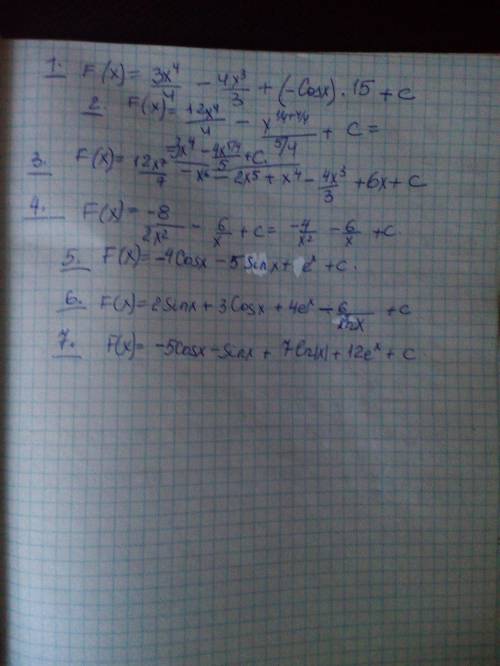 1. F(x) = 3x⁴/4 - 4x³/3 + (-Cosx)·15 + C
2. F(x) = 12x⁴/4 - x^(1/4+4/4)/(5/4) + C =
= 3x⁴ - 4x^(5/4)/5 + C.
3. F(x) = 12x⁷/7 - x⁶ - 2x⁵ + x⁴ - 4x³/3 + 6x + C
4. F(x) = -8/2x² - 6/x + C = -4/x² - 6/x + C.
5. F(x) = -4Cosx - 5Sinx + eˣ + C.
6. F(x) = 2Sinx + 3Cosx + 4eˣ - 6/lnx + C
7. F(x) = -5Cosx - Sinx + 7ln|x| + 12eˣ + C